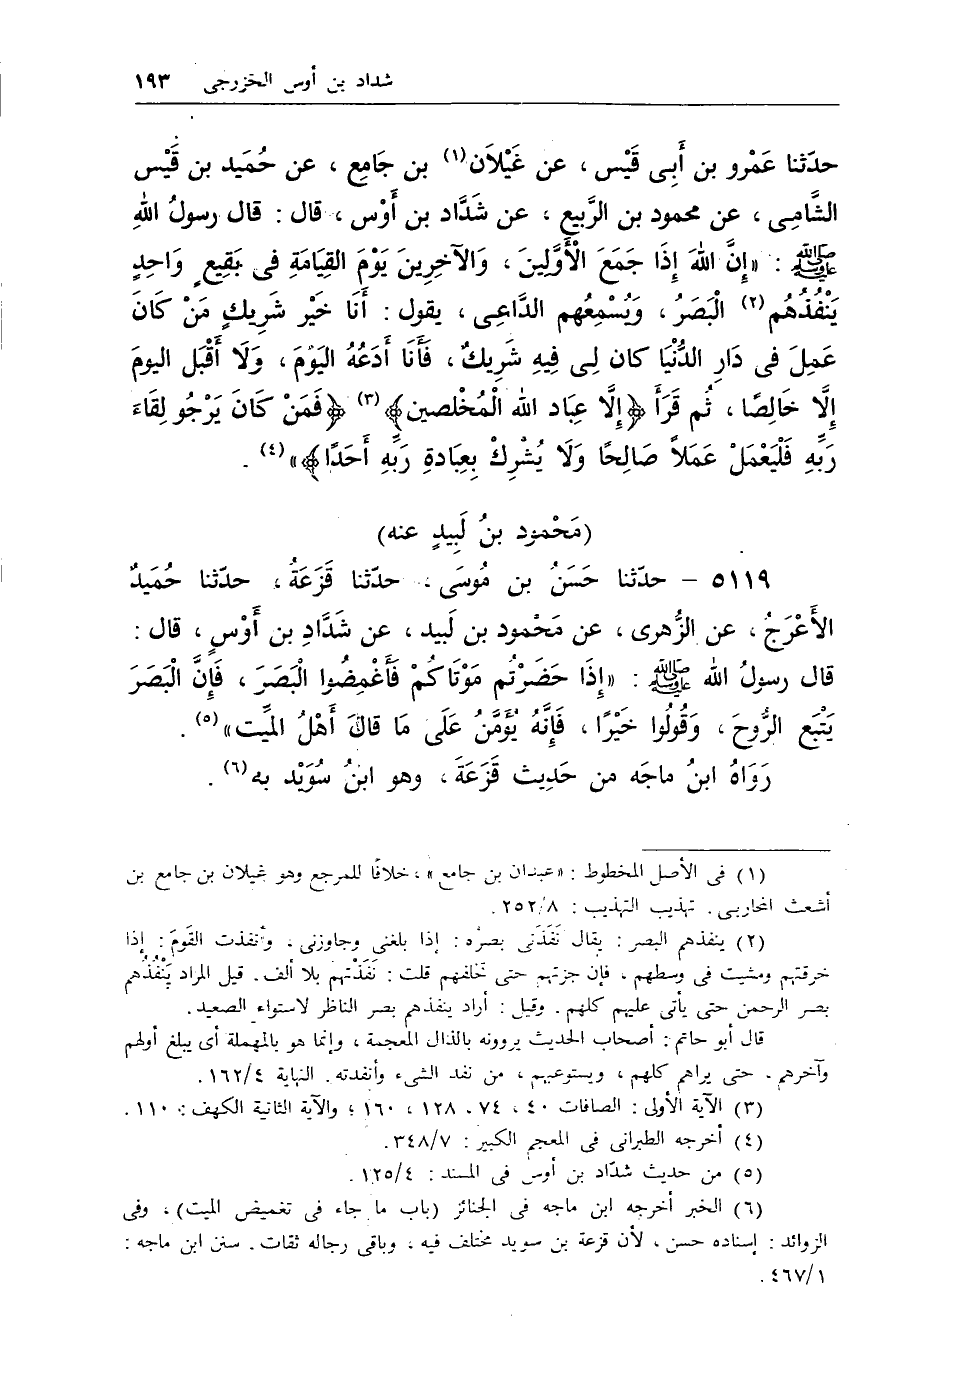 شداد بن أوس الخزرجى ١٩٣
حدّثنا عَمْرو بن أَبِى قَيْس ، عن غَيْلاَن(١) بن جَامِع ، عن حُمَيد بن قَيْس
الشَّامِى ، عن محمود بن الرَّبيع ، عن شَدَّاد بن أَوْس ، قال : قال رسولُ اللهِ
ﷺ : «إِنَّ اللهَ إِذَا جَمَعَ الْأَوَّلِينَ ، وَالآخِرِينَ يَوْمَ القِيَامَةِ فى بَقِيعٍ وَاحِدٍ
يَنْفُذُهُم(٢) الْبَصَرُ ، وَيُسْمِعُهم الدَّاعِى ، يقول : أَنَا خَيْر شَرِيكٍ مَنْ كَانَ
عَمِلَ فى دَارِ الدُّنْيَا كان لِى فِيهِ شَرِيكٌ ، فَأَنَا أَدَعُهُ اليَوْمَ ، وَلَا أَقْبَل اليومَ
إِلَّا خَالِصًا ، ثُم قَرَأَ ﴿إِلَّا عِبَاد الله الْمُخْلصين﴾(٣) ﴿فَمَنْ كَانَ يَرْجُو لِقَاءَ
رَبِّهِ فَلْيَعْمَلْ عَمَلاً صَالِحًا وَلَا يُشْرِكْ بِعِبَادةِ رَبِّهِ أَحَدًا﴾»(٤) .
(مَحْمُود بنُ لَبِيدٍ عنه)
٥١١٩ – حدّثنا حَسَنُ بن مُوسَى ، حدّثنا قَزَعَةُ ، حدّثنا حُمَيدٌ
الأَعْرَجُ ، عن الزُّهرى ، عن مَحْمُود بن لَبيد ، عن شَدَّادِ بن أَوْسٍ ، قال :
قال رسولُ الله ﷺ : «إِذَا حَضَرْتُم مَوْتَاكُمْ فَأَغْمِضُوا الْبَصَرَ ، فَإِنَّ الْبَصَرَ
يَتْبَع الرُّوحَ ، وَقُولُوا خَيْرًا ، فَإِنَّهُ يُؤَمَّنُ عَلَى مَا قَالَ أَهْلُ المَيِّت»(٥) .
رَوَاهُ ابنُ ماجَه من حَدِيث قَزَعَةَ ، وهو ابنُ سُوَيْد به(٦) .
(١) فى الأصل المخطوط : «عبدان بن جامع» ، خلافًا للمرجع وهو غيلان بن جامع بن
أشعث المحاربى . تهذيب التهذيب : ٢٥٢/٨ .
(٢) ينفذهم البصر : يقال نَفَذَنى بصرُه : إذا بلغنى وجاوزنى ، وأنفذت القومَ : إذا
خرقتهم ومشيت فى وسطهم ، فإن جزتهم حتى تخلفهم قلت : نَفَذْتهم بلا ألف . قيل المراد يَنْفُذُهم
بصر الرحمن حتى يأتى عليهم كلهم . وقيل : أراد ينفذهم بصر الناظر لاستواء الصعيد .
قال أبو حاتم : أصحاب الحديث يروونه بالذال المعجمة ، وإنما هو بالمهملة أى يبلغ أولهم
وآخرهم ، حتى يراهم كلهم ، ويستوعبهم ، من نفد الشىء وأنفدته . النهاية ١٦٢/٤ .
(٣) الآية الأولى : الصافات ٤٠ ، ٧٤ ، ١٢٨ ، ١٦٠ ؛ والآية الثانية الكهف : ١١٠ .
(٤) أخرجه الطبرانى فى المعجم الكبير : ٣٤٨/٧ .
(٥) من حديث شدّاد بن أوس فى المسند : ١٢٥/٤ .
(٦) الخبر أخرجه ابن ماجه فى الجنائز (باب ما جاء فى تغميض الميت) ، وفى
الزوائد : إسناده حسن ، لأن قزعة بن سويد مختلف فيه ، وباقى رجاله ثقات . سنن ابن ماجه :
٤٦٧/١ .